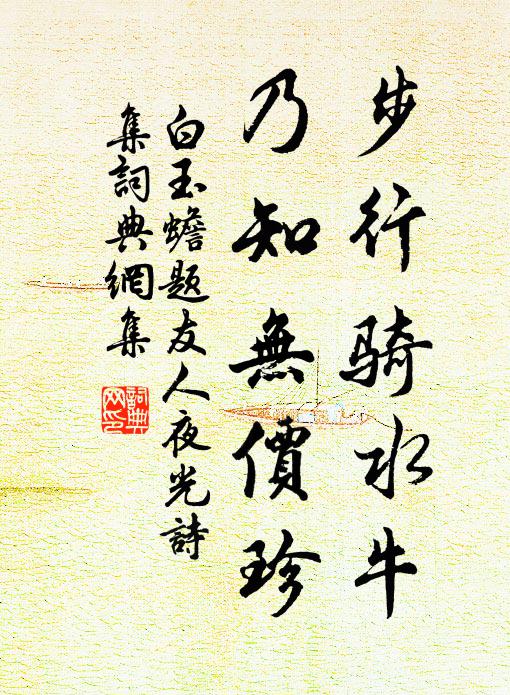 步行騎水牛
乃知無價珍
白玉蟾題友人夜光詩
集詞典網集
詞典
网印